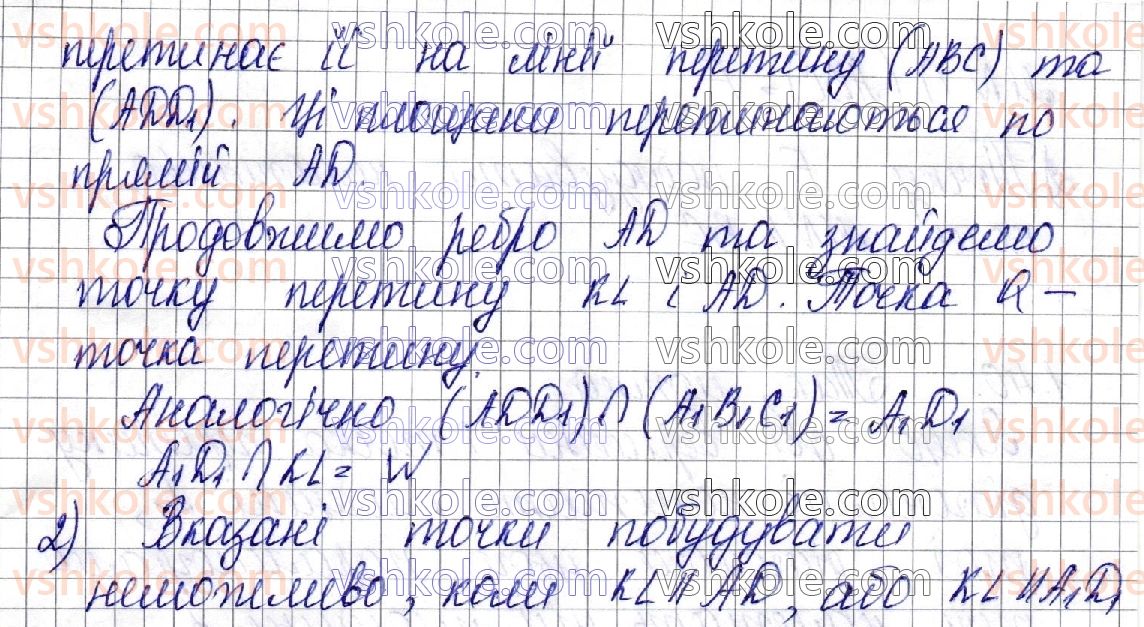 перетинає її на лінії перетину (ABC) та
(ADD₁). Ці площини перетинаються по
прямій AD.
Продовжимо ребро AD та знайдемо
точку перетину KL і AD. Точка Q –
точка перетину.
Аналогічно (ADD₁)∩(A₁B₁C₁) = A₁D₁
A₁D₁∩KL = W
2) Вказані точки побудувати
неможливо, коли KL∥AD, або KL∥A₁D₁
vshkole.com